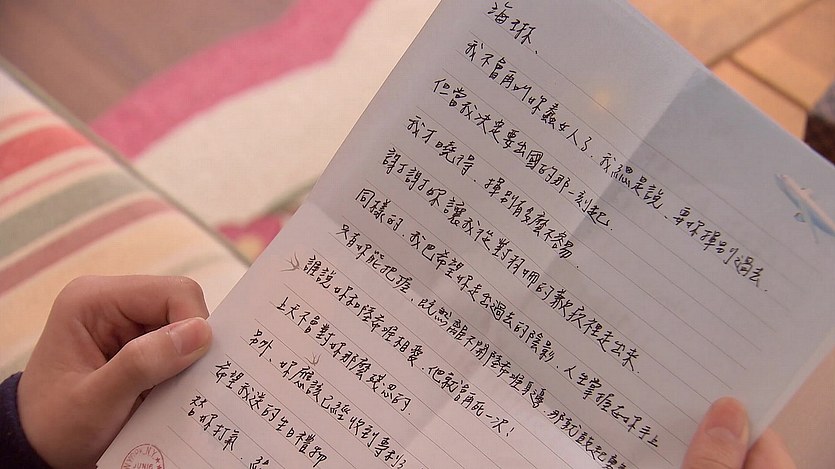 海琳、
我不會再叫妳蠢女人了、我總是說、要妳揮別過去、
但當我決定要出國的那一刻起、
我才曉得、揮別有多麼不容易、
謝謝妳讓我從對 的歉疚裡走出來、
同樣的、我也希望妳走出過去的陰影、人生掌握在妳手上
只有妳能把握、既然離不開陸希唯身邊、那就
誰說妳和陸希唯相愛、他就會再死一次!
上天不會對妳那麼殘忍的、
另外、妳應該已經收到專利了
希望我送的生日禮物
替妳打氣、
JUN16